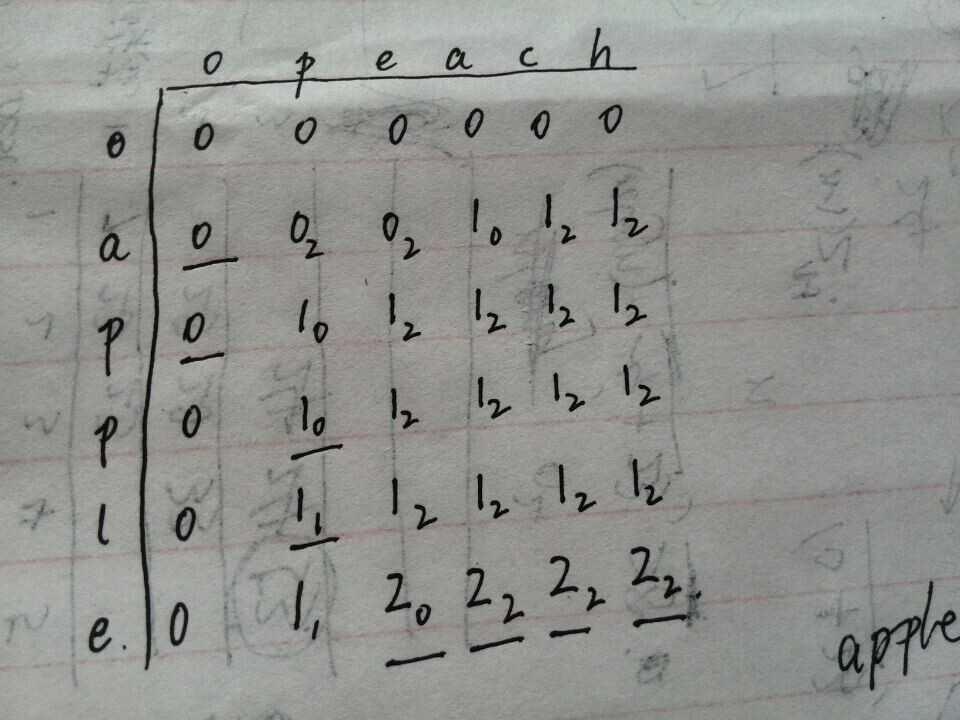 0 p e a c h
0 0 0 0 0 0 0
a 0 0₂ 0₂ 1₀ 1₂ 1₂
p 0 1₀ 1₂ 1₂ 1₂ 1₂
p 0 1₀ 1₂ 1₂ 1₂ 1₂
l 0 1₁ 1₂ 1₂ 1₂ 1₂
e. 0 1₁ 2₀ 2₂ 2₂ 2₂.
apple